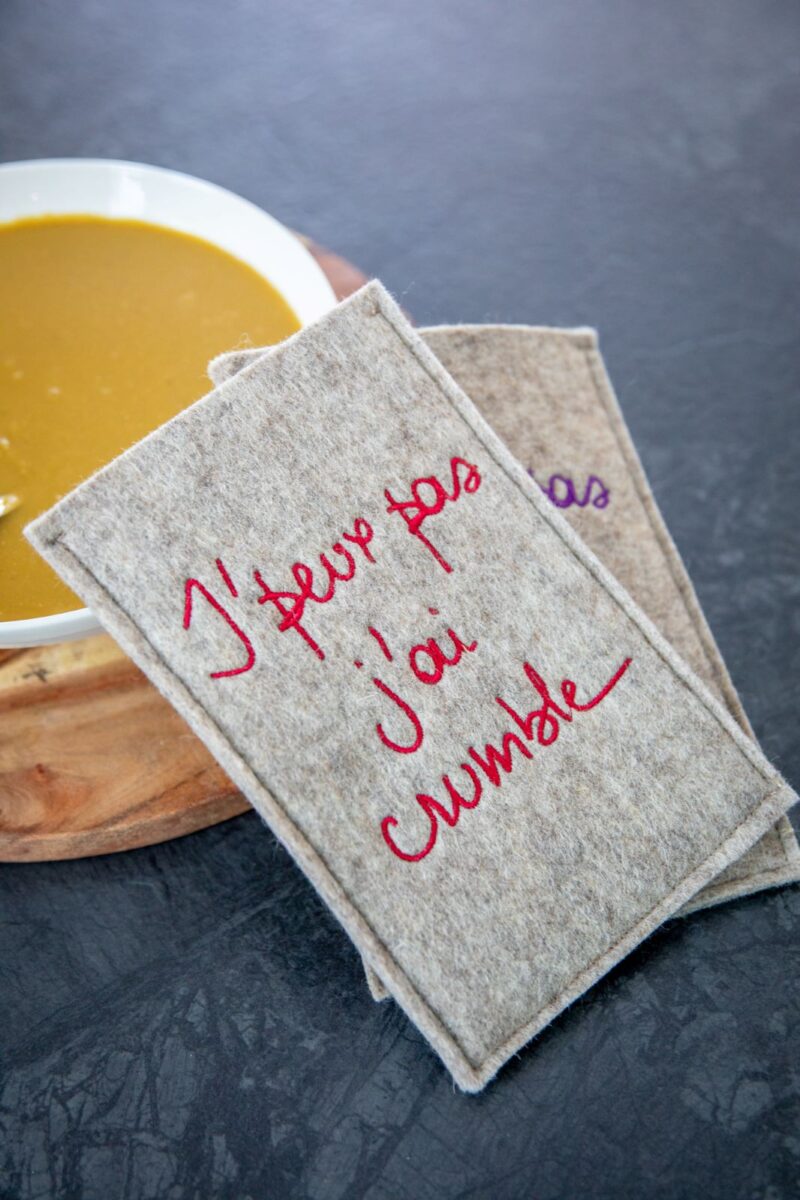 J'peux pas
j'ai
crumble
pas